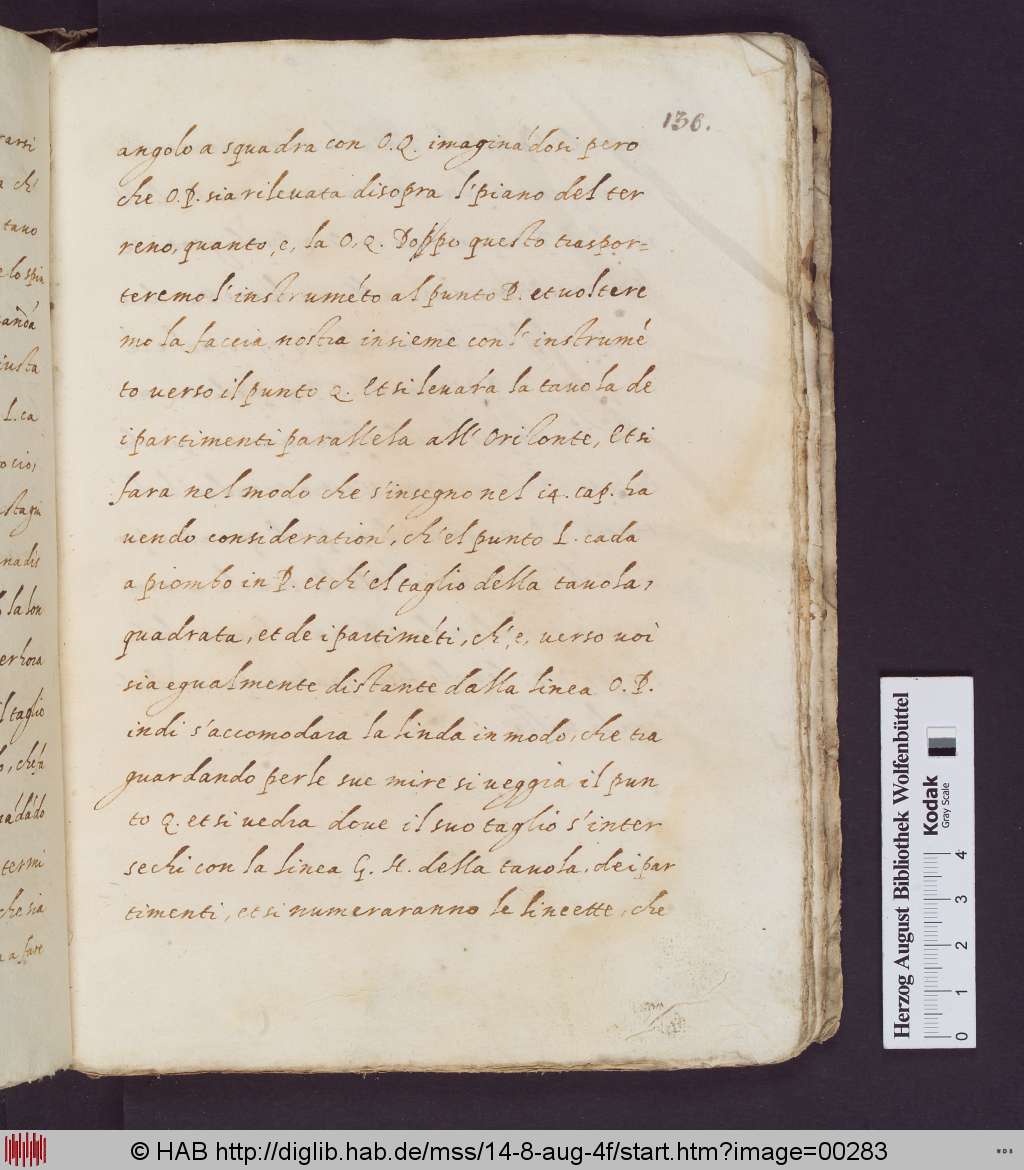 136.
angolo a squadra con O.Q. imaginádosi pero
che O.P. sia rilevata disopra l'piano del ter
reno, quanto, e, la O, Q. Doppo questo traspor=
teremo l'instruméto al punto P. et voltere
mo la faccia nostra insieme con l'instrumé
to verso il punto Q. Et si levara la tavola de
i partimenti parallela all'Orizonte, Et si
fara nel modo che s'insegno nel i4. cap. ha
vendo consideration', ch'el punto L. cada
a piombo in P. et ch'el taglio della tavola,
quadrata, et de i partiméti, ch', e, verso voi
sia egualmente distante dalla linea O.P.
indi s'accomodara la linda in modo, che tra
guardando per le sue mire si veggia il pun
to Q. et si vedra dove il suo taglio s'inter
sechi con la linea G. H. della tavola, de i par
timenti, et si numeraranno le lineette, che
rarsi
tavo
e lo spin
iusta
L. ca
la lon
er hora
l taglio
termi
che sia
a fare
Herzog August Bibliothek Wolfenbüttel
Kodak
Gray Scale
0 1 2 3 4
© HAB http://diglib.hab.de/mss/14-8-aug-4f/start.htm?image=00283